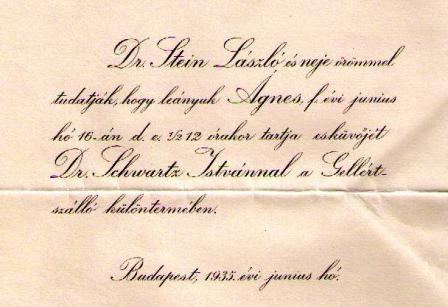 Dr. Stein László és neje örömmel
tudatják, hogy leányuk Ágnes, f. évi junius
hó 16-án d. e. 1/2 12 órakor tartja esküvőjét
Dr. Schwartz Istvánnal a Gellért-
szálló különtermében.
Budapest, 1935. évi junius hó.